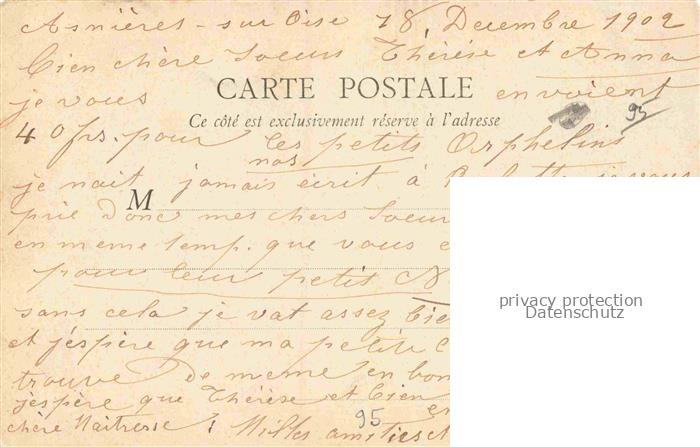 Asnières-sur Oise 18, Decembre 1902
Bien chère Soeurs Thérèse et Anna
je vous envoient
CARTE POSTALE
Ce côté est exclusivement réservé à l'adresse
93
40 frs. pour les petits Orphelins
nos
je nait jamais écrit à je vous
M
prie donc mes chers Soeur
en meme temp. que vous
pour leur petit N
sans cela je vat assez bie
privacy protection
Datenschutz
et j'éspère que ma petite
trouve de meme en bon
j'éspère que Thérèse et bien
95
chère Maitresse! Milles amities et